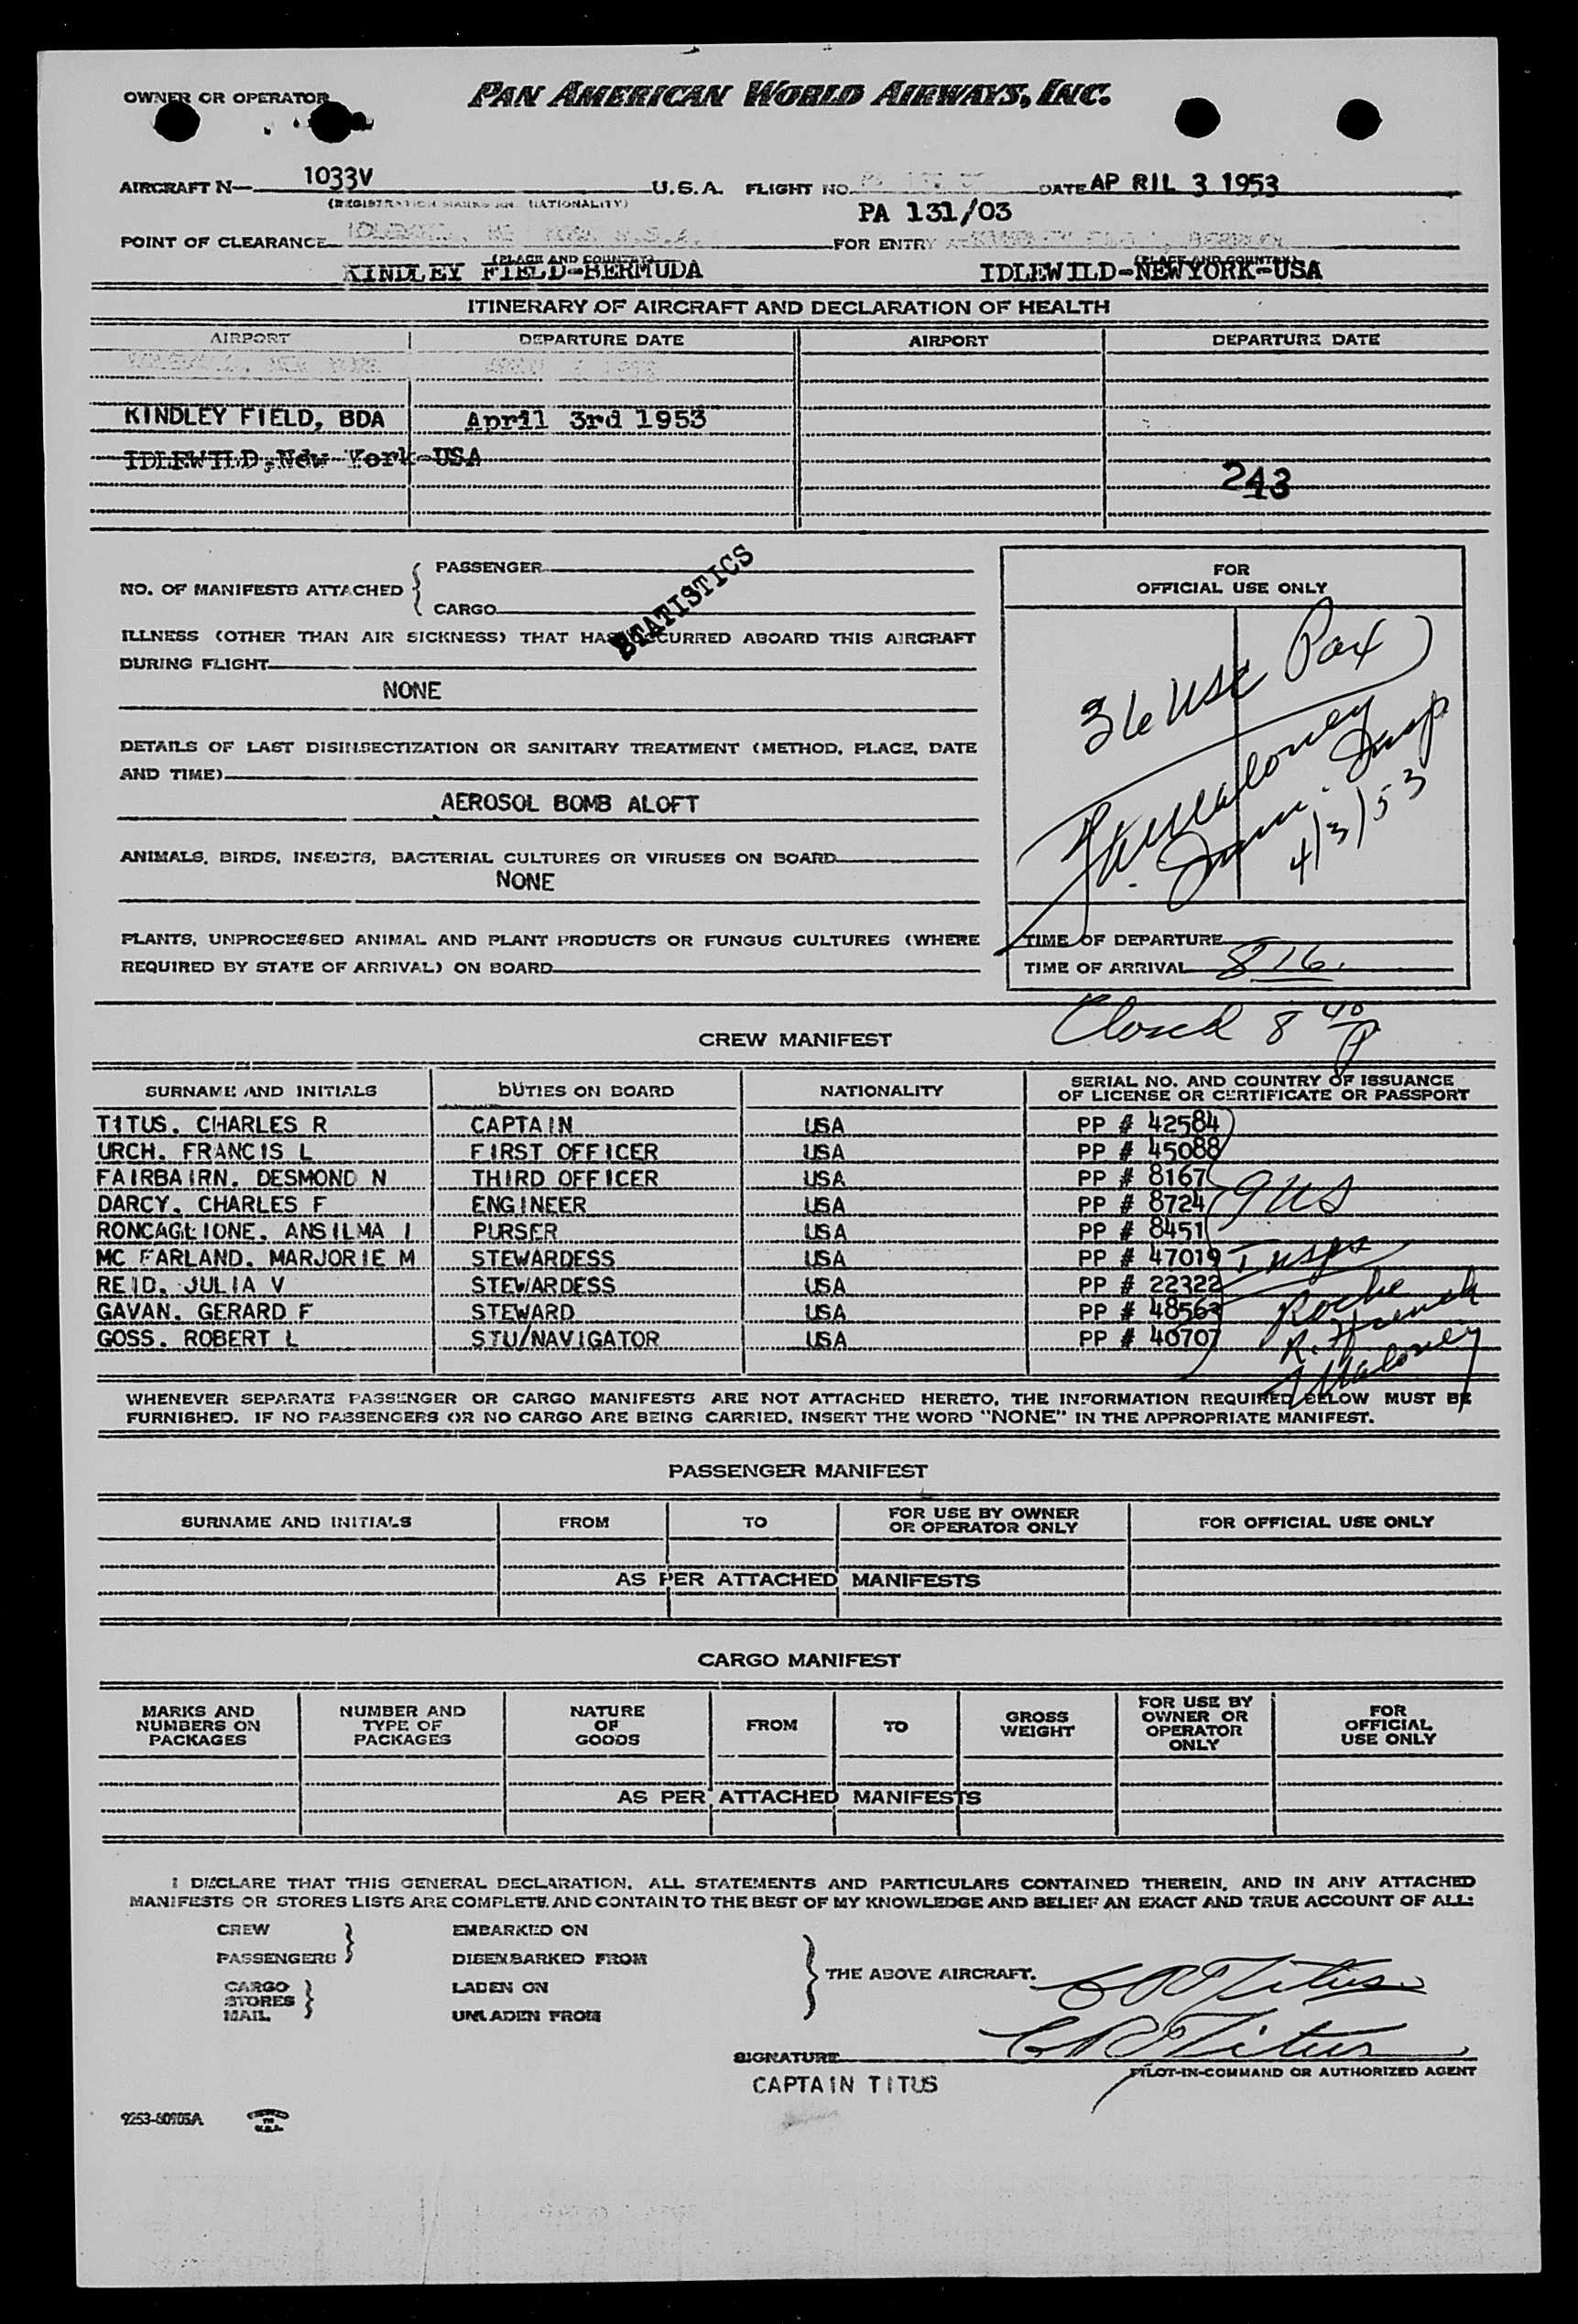 OWNER OR OPERATOR PAN AMERICAN WORLD AIRWAYS, INC.
AIRCRAFT N— 1033V U.S.A. FLIGHT NO. DATE AP RIL 3 1953
(REGISTRATION MARKS AND NATIONALITY)
PA 131/03
POINT OF CLEARANCE FOR ENTRY
(PLACE AND COUNTRY) (PLACE AND COUNTRY)
KINDLEY FIELD-BERMUDA IDLEWILD-NEWYORK-USA
ITINERARY OF AIRCRAFT AND DECLARATION OF HEALTH
AIRPORT DEPARTURE DATE AIRPORT DEPARTURE DATE
KINDLEY FIELD, BDA April 3rd 1953
IDLEWILD, New York-USA
243
STATISTICS
NO. OF MANIFESTS ATTACHED { PASSENGER
CARGO
ILLNESS (OTHER THAN AIR SICKNESS) THAT HAS OCCURRED ABOARD THIS AIRCRAFT
DURING FLIGHT
NONE
DETAILS OF LAST DISINSECTIZATION OR SANITARY TREATMENT (METHOD, PLACE, DATE
AND TIME)
AEROSOL BOMB ALOFT
ANIMALS, BIRDS, INSECTS, BACTERIAL CULTURES OR VIRUSES ON BOARD
NONE
PLANTS, UNPROCESSED ANIMAL AND PLANT PRODUCTS OR FUNGUS CULTURES (WHERE
REQUIRED BY STATE OF ARRIVAL) ON BOARD
FOR
OFFICIAL USE ONLY
36 USC Pax
Maloney
Imm. Insp
4/3/53
TIME OF DEPARTURE
TIME OF ARRIVAL 8 16
Closed 8 40 P
CREW MANIFEST
SURNAME AND INITIALS DUTIES ON BOARD NATIONALITY SERIAL NO. AND COUNTRY OF ISSUANCE
OF LICENSE OR CERTIFICATE OR PASSPORT
TITUS. CHARLES R CAPTAIN USA PP # 42584
URCH. FRANCIS L FIRST OFFICER USA PP # 45088
FAIRBAIRN. DESMOND N THIRD OFFICER USA PP # 8167
DARCY. CHARLES F ENGINEER USA PP # 8724
RONCAGLIONE. ANSILMA I PURSER USA PP # 8451
MC FARLAND. MARJORIE M STEWARDESS USA PP # 47019
REID. JULIA V STEWARDESS USA PP # 22322
GAVAN. GERARD F STEWARD USA PP # 48563
GOSS. ROBERT L STU/NAVIGATOR USA PP # 40707
9 US
Insps
Roche
R. French
Maloney
WHENEVER SEPARATE PASSENGER OR CARGO MANIFESTS ARE NOT ATTACHED HERETO, THE INFORMATION REQUIRED BELOW MUST BE
FURNISHED. IF NO PASSENGERS OR NO CARGO ARE BEING CARRIED, INSERT THE WORD "NONE" IN THE APPROPRIATE MANIFEST.
PASSENGER MANIFEST
SURNAME AND INITIALS FROM TO FOR USE BY OWNER
OR OPERATOR ONLY FOR OFFICIAL USE ONLY
AS PER ATTACHED MANIFESTS
CARGO MANIFEST
MARKS AND
NUMBERS ON
PACKAGES NUMBER AND
TYPE OF
PACKAGES NATURE
OF
GOODS FROM TO GROSS
WEIGHT FOR USE BY
OWNER OR
OPERATOR
ONLY FOR
OFFICIAL
USE ONLY
AS PER ATTACHED MANIFESTS
I DECLARE THAT THIS GENERAL DECLARATION, ALL STATEMENTS AND PARTICULARS CONTAINED THEREIN, AND IN ANY ATTACHED
MANIFESTS OR STORES LISTS ARE COMPLETE, AND CONTAIN TO THE BEST OF MY KNOWLEDGE AND BELIEF AN EXACT AND TRUE ACCOUNT OF ALL:
CREW } EMBARKED ON
PASSENGERS DISEMBARKED FROM
CARGO } LADEN ON
STORES
MAIL UNLADEN FROM
} THE ABOVE AIRCRAFT.
C R Titus
C R Titus
SIGNATURE
PILOT-IN-COMMAND OR AUTHORIZED AGENT
CAPTAIN TITUS